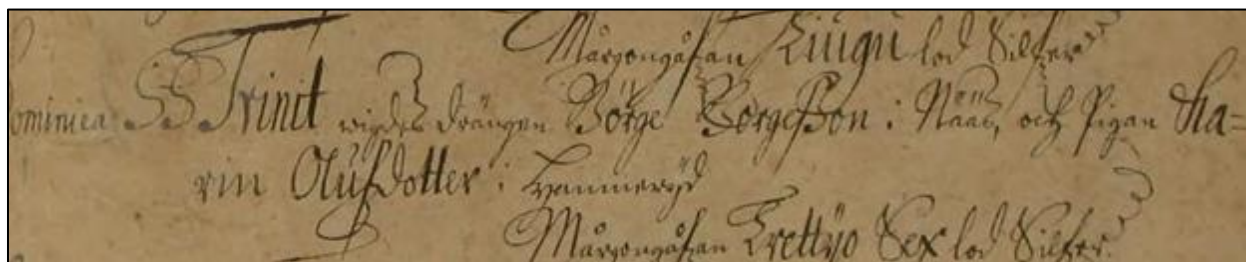 Mårgongåfan Tiugu lod Silfer
Dominica SS Trinit wigdes drängen Börge BörgeSson i Naas, och Pigan Cha=
rin Olufsdotter i Hammeryd
Mårgongåfan Trettijo Sex lod Silfer